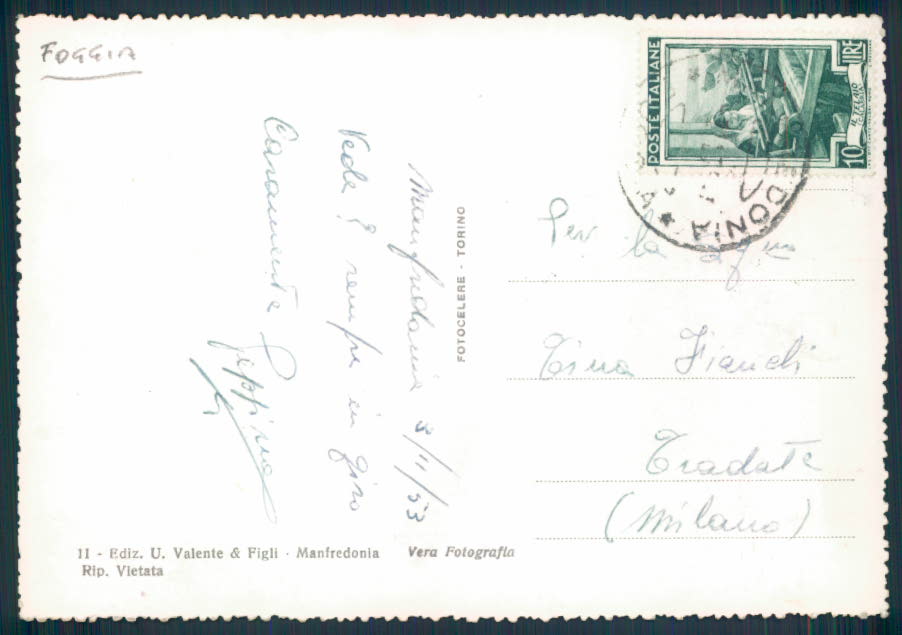 FOGGIA
POSTE ITALIANE
10 LIRE
IL TELAIO
DONIA
Manfredonia 8/11/53
Vede? È sempre in giro
Caramente Peppina
FOTOCELERE - TORINO
Per la
Tina Bianchi
Tradate
(Milano)
11 - Ediz. U. Valente & Figli - Manfredonia Vera Fotografia
Rip. Vietata